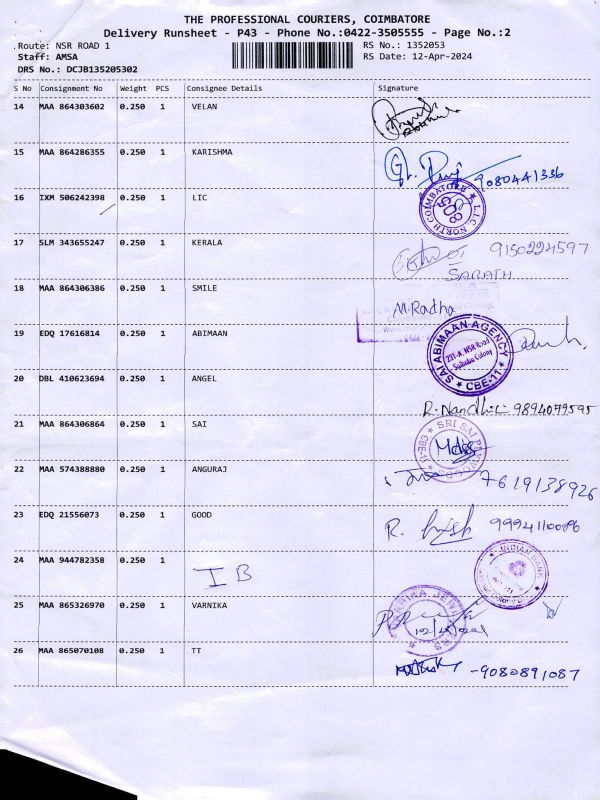 THE PROFESSIONAL COURIERS, COIMBATORE
Delivery Runsheet - P43 - Phone No.:0422-3505555 - Page No.:2
Route: NSR ROAD 1 RS No.: 1352053
Staff: AMSA RS Date: 12-Apr-2024
DRS No.: DCJB135205302
S No Consignment No Weight PCS Consignee Details Signature
14 MAA 864303602 0.250 1 VELAN
15 MAA 864286355 0.250 1 KARISHMA
9080441336
16 IXM 506242398 0.250 1 LIC
L.I.C. NORTH COIMBATORE
17 SLM 343655247 0.250 1 KERALA 9150224597
SARATH
18 MAA 864306386 0.250 1 SMILE M.Radha
19 EDQ 17616814 0.250 1 ABIMAAN
SAI ABIMAAN AGENCY
231-A, NSR Road
Saibaba Colony
CBE-11
20 DBL 410623694 0.250 1 ANGEL
R. Nandhini 9894079595
21 MAA 864306864 0.250 1 SAI
SRI SAI
CBE-11
22 MAA 574388880 0.250 1 ANGURAJ 7619138926
23 EDQ 21556073 0.250 1 GOOD R. 9994110086
24 MAA 944782358 0.250 1 IB
INDIAN BANK
25 MAA 865326970 0.250 1 VARNIKA
26 MAA 865070108 0.250 1 TT
-9080891087